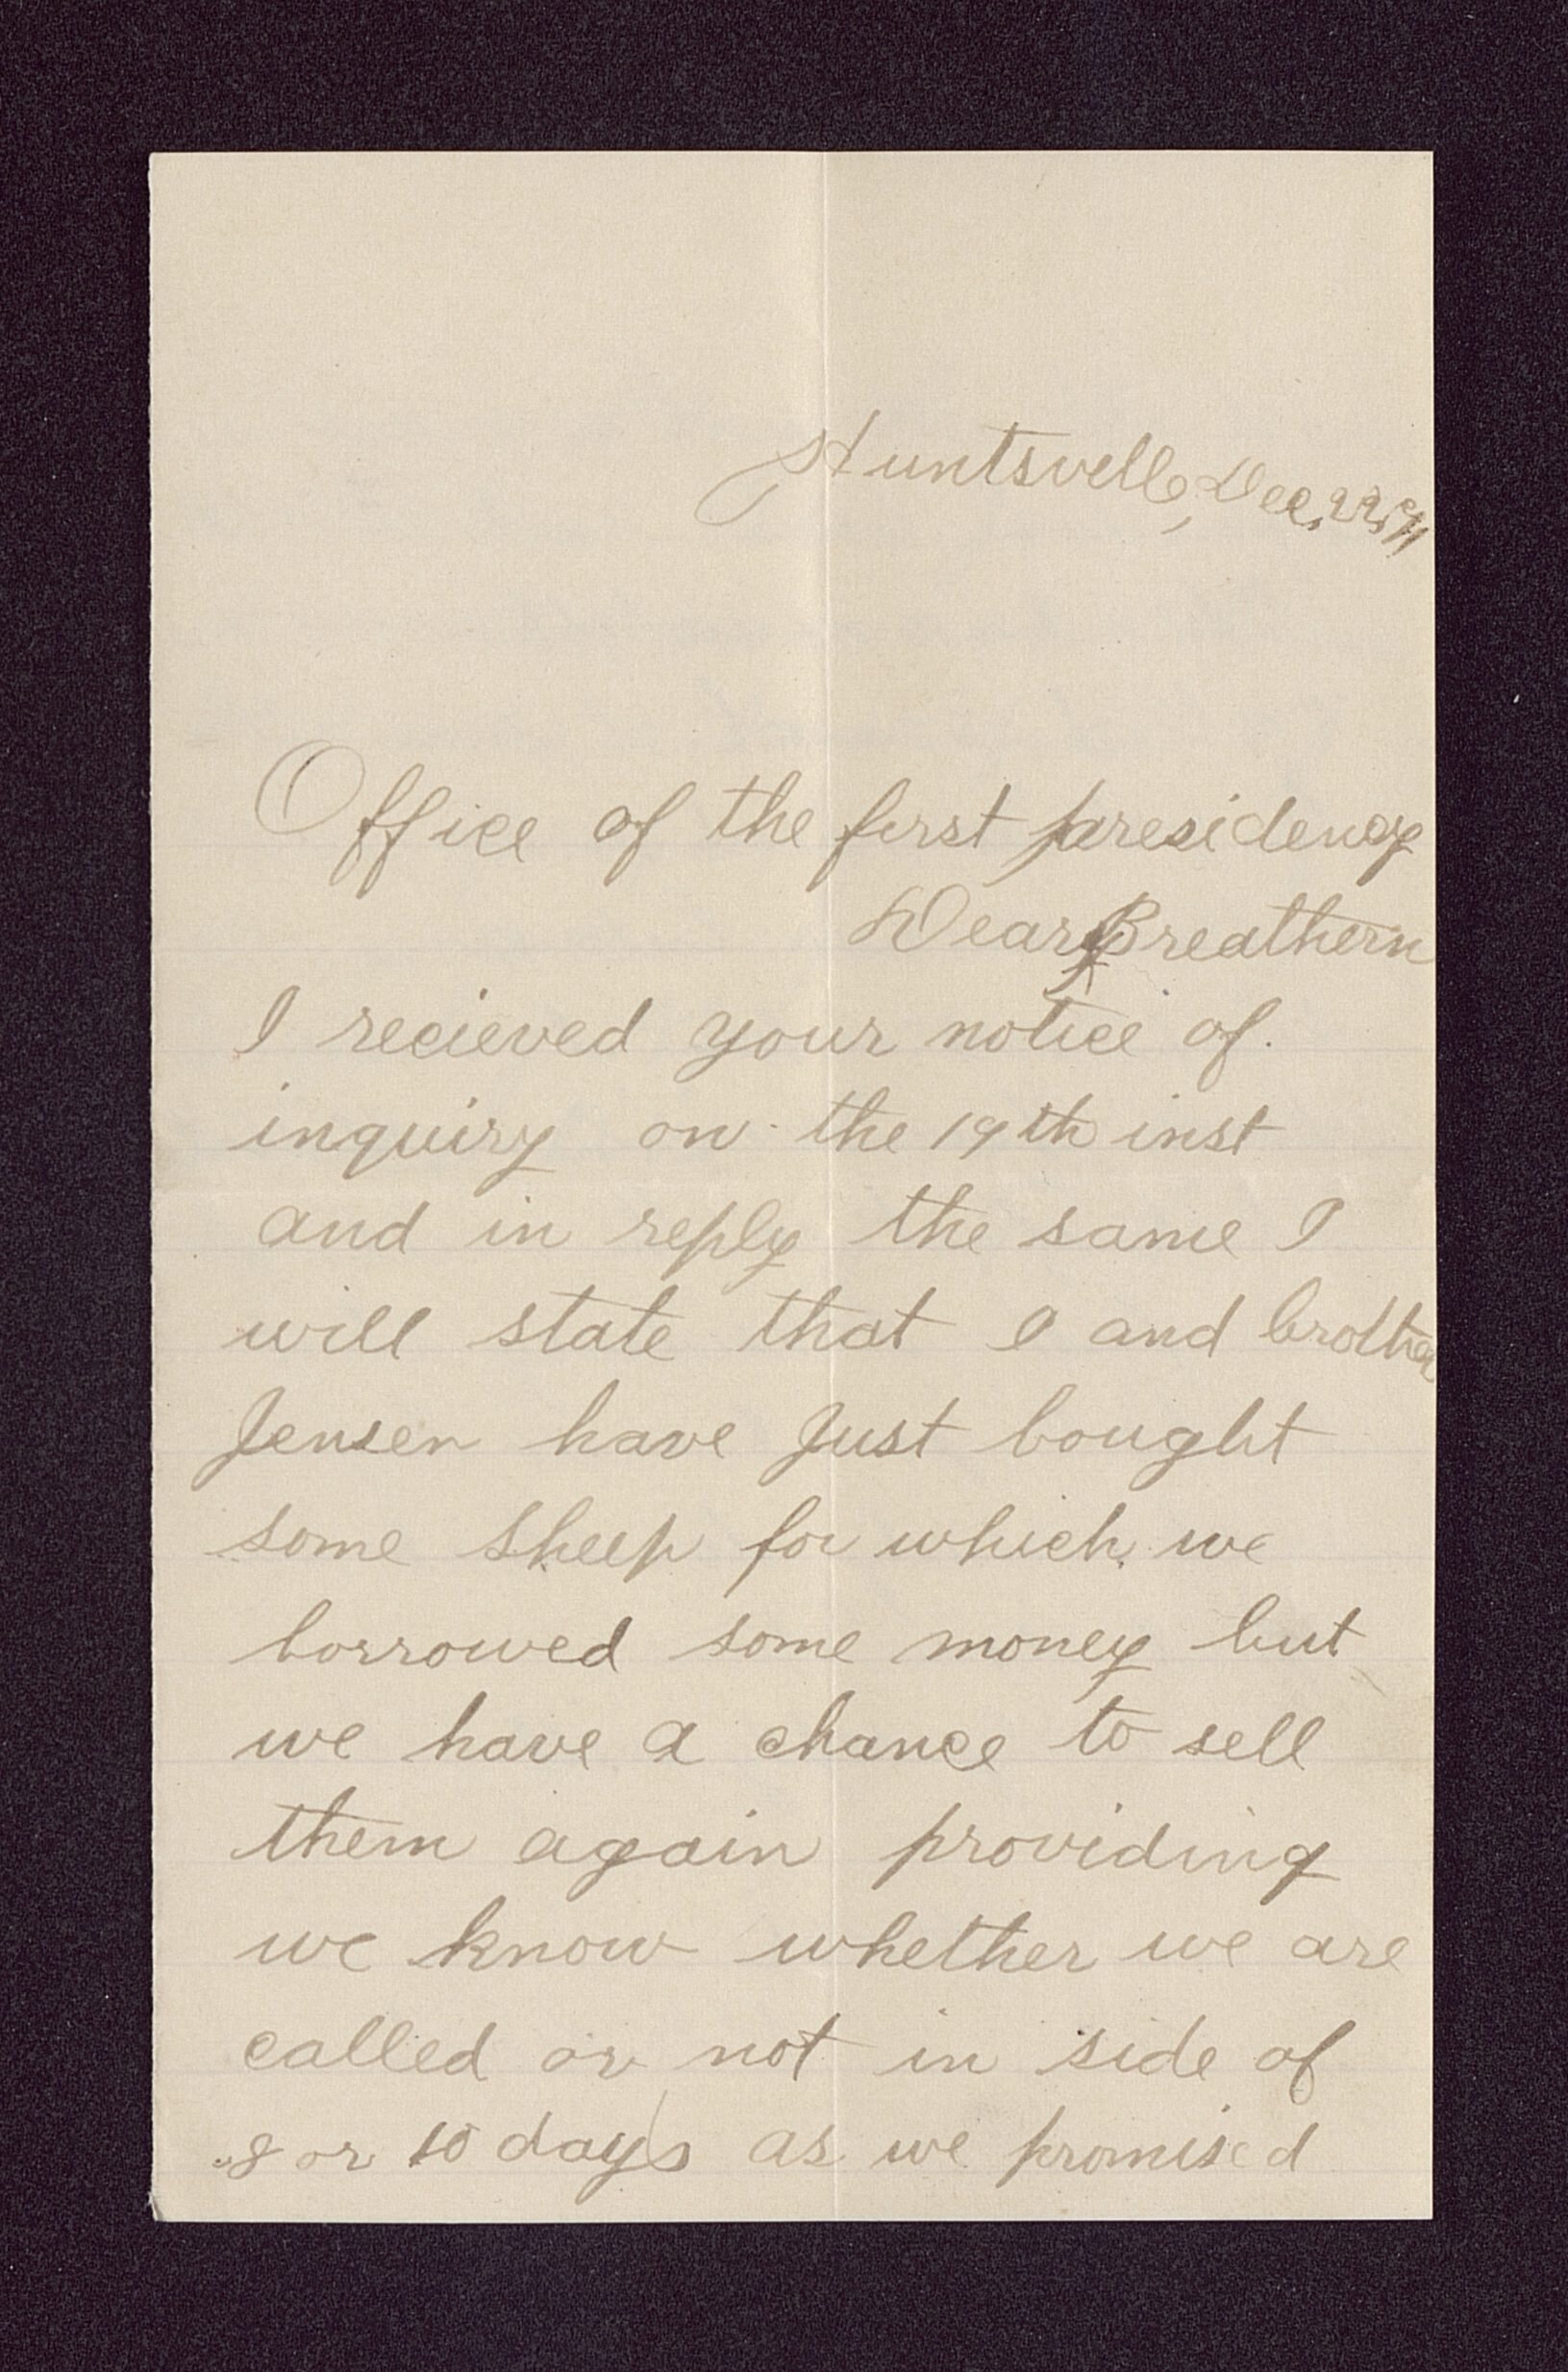 Huntsvell, Dec, 22, 91
Office of the first presidency
Dear Breathern
I recieved your notice of
inquiry on the 19th inst
and in reply the same I
will state that I and brother
Jensen have Just bought
some sheep for which we
borrowed some money but
we have a chance to sell
them again providing
we know whether we are
called or not in side of
8 or 10 days as we promised